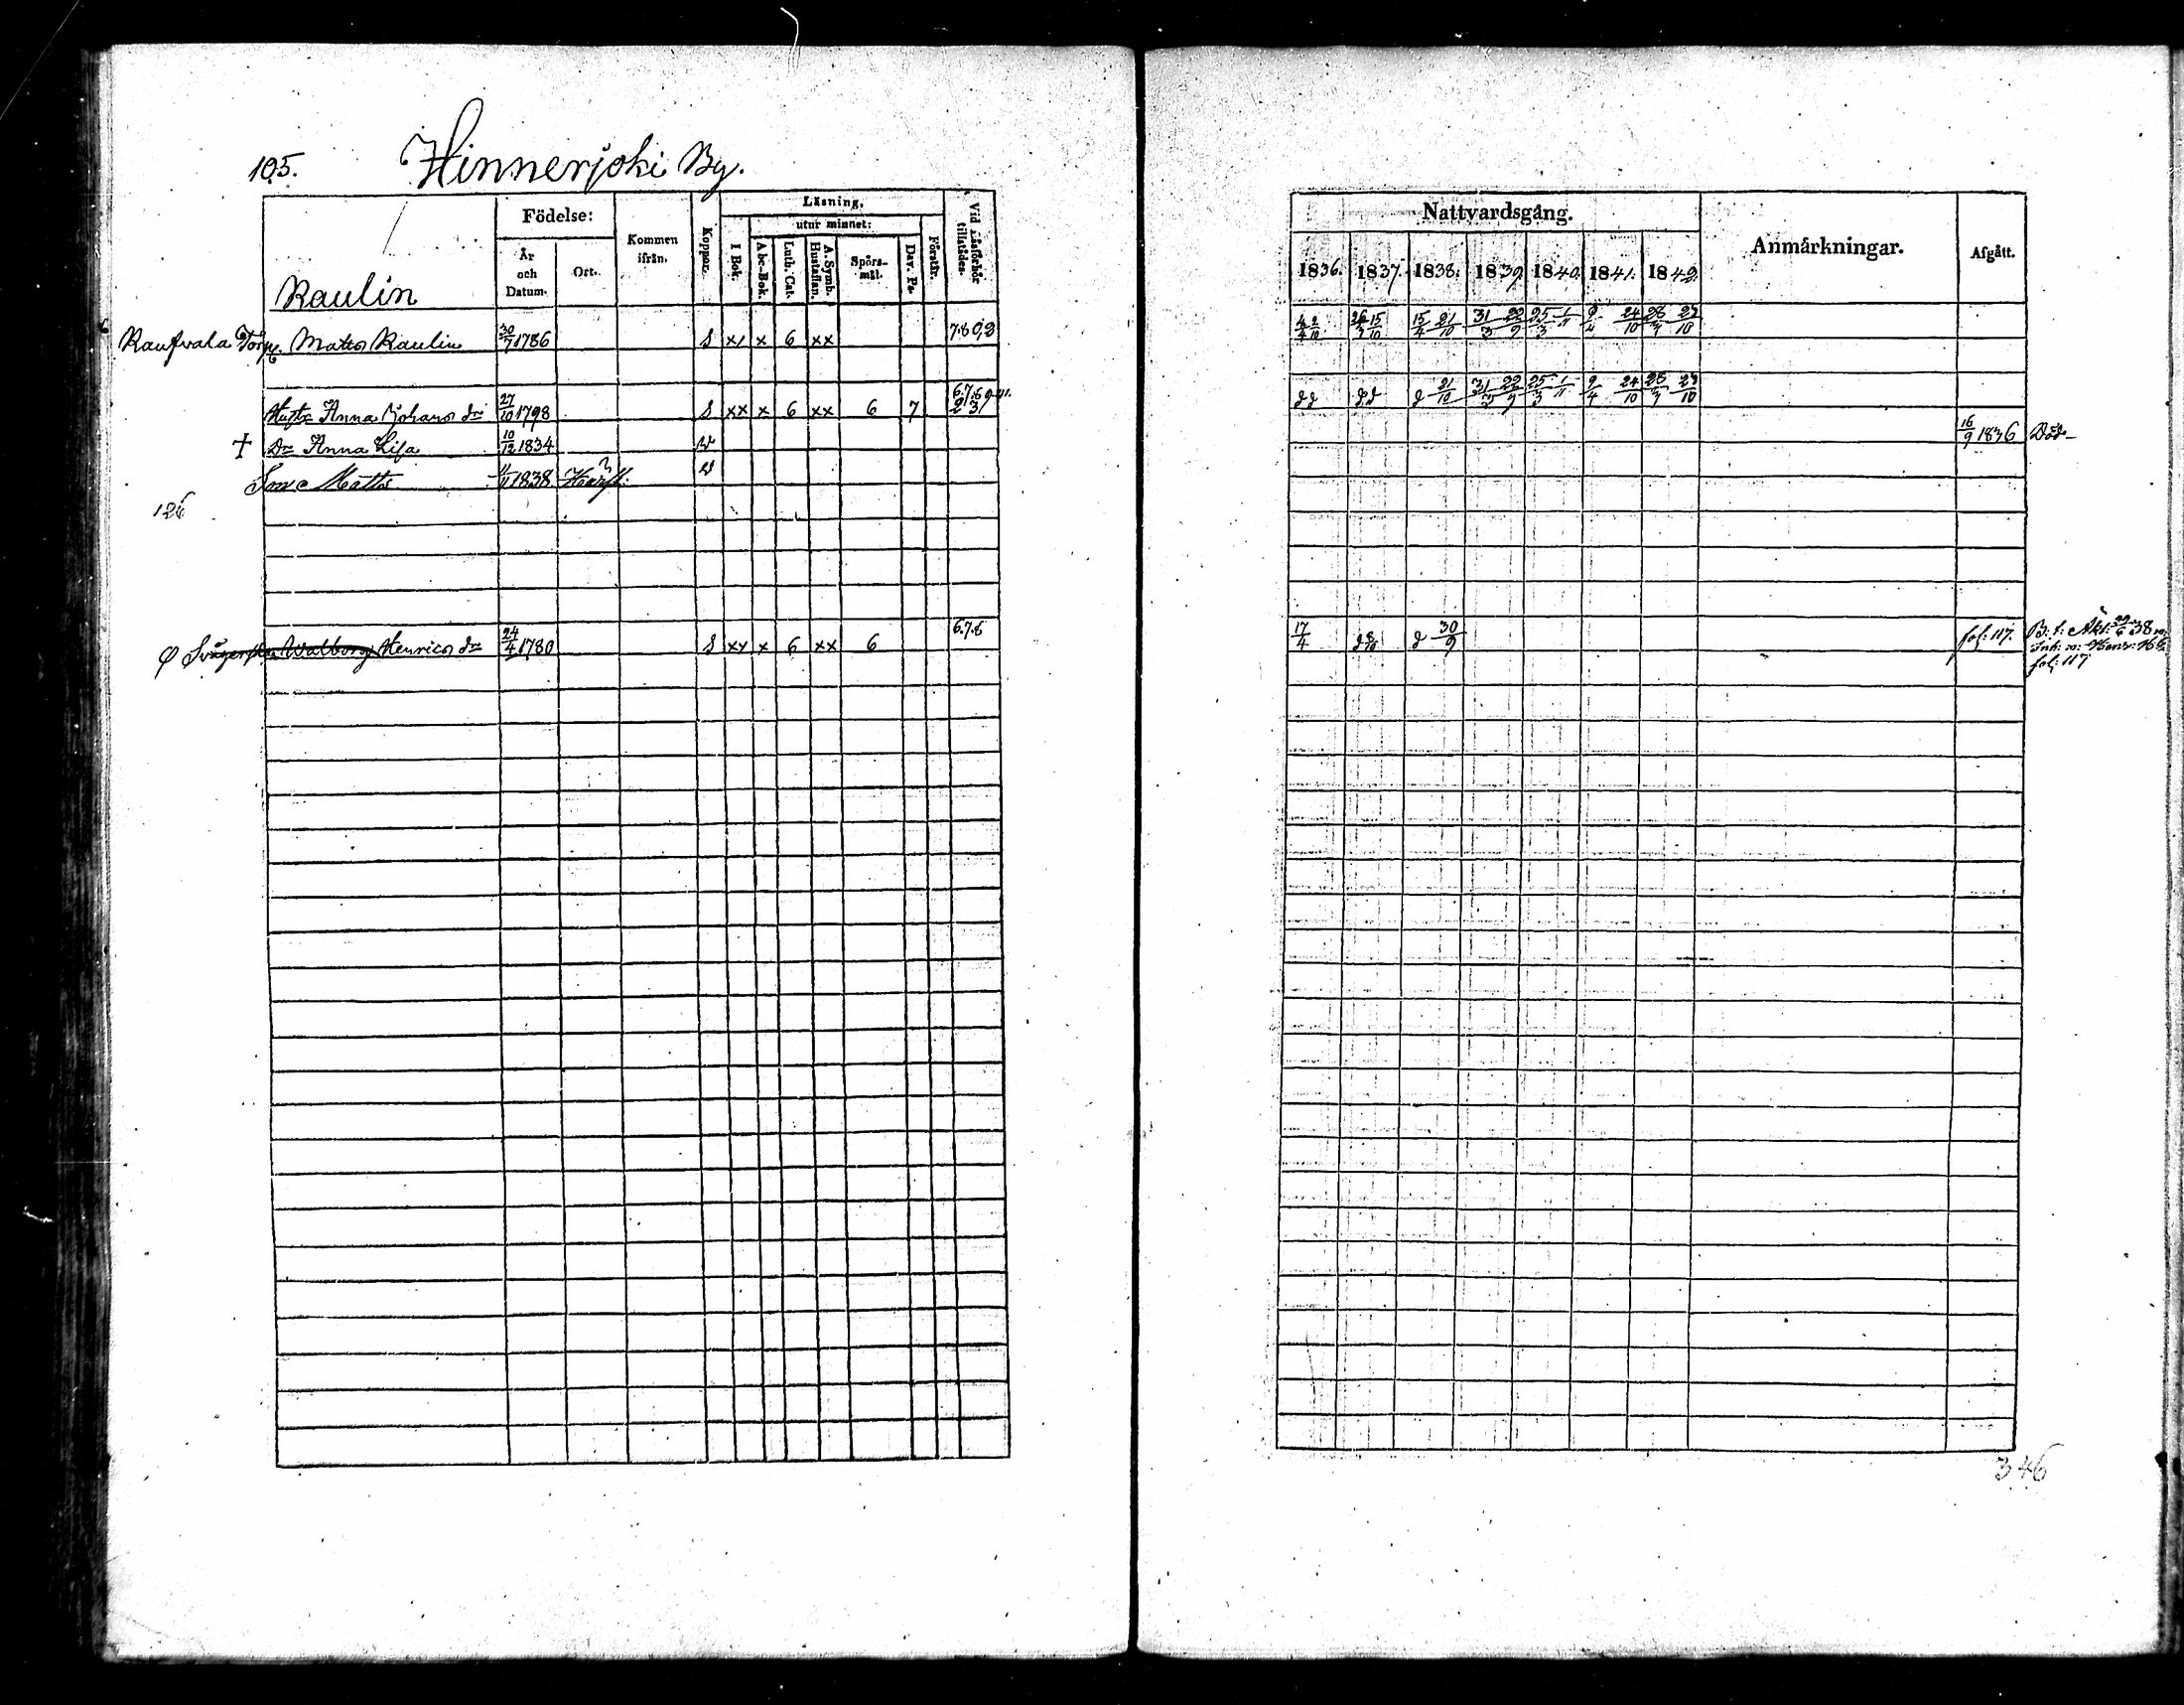 105. Hinnerjoki By.
Raulin
Födelse:
År och Datum.
Ort.
Kommen ifrån.
Koppor.
Läsning,
I Bok.
utur minnet:
Abc-Bok.
Luth. Cat.
A. Symb. Hustaflan.
Spörs-mål.
Dav. Ps.
Förstår.
Vid Läsförhör tillstädes.
Torp. Matts Raulin 30/7 1786 S x x 6 xx
Hustr Anna Johans dr 27/10 1798 S xx x 6 xx 6 7
† Dr Anna Lisa 10/12 1834 v
Son Matts 1838 v
126
Walborg Henrics dr 24/4 1780 S xx x 6 xx 6 6.7.8
Nattvardsgång.
1836. 1837. 1838. 1839. 1840. 1841. 1842.
Anmärkningar.
Afgått.
4/4 2/10 26/3 15/10 15/4 21/10 31/3 22/9 25/3 1/11 9/4 24/10 28/3 23/10
d d d d d 21/10 31/3 22/9 25/3 1/11 9/4 24/10 28/3 23/10
16/9 1836 Död
17/4 d 8/10 d 30/9 fol: 117. B: t:
fol: 117
346